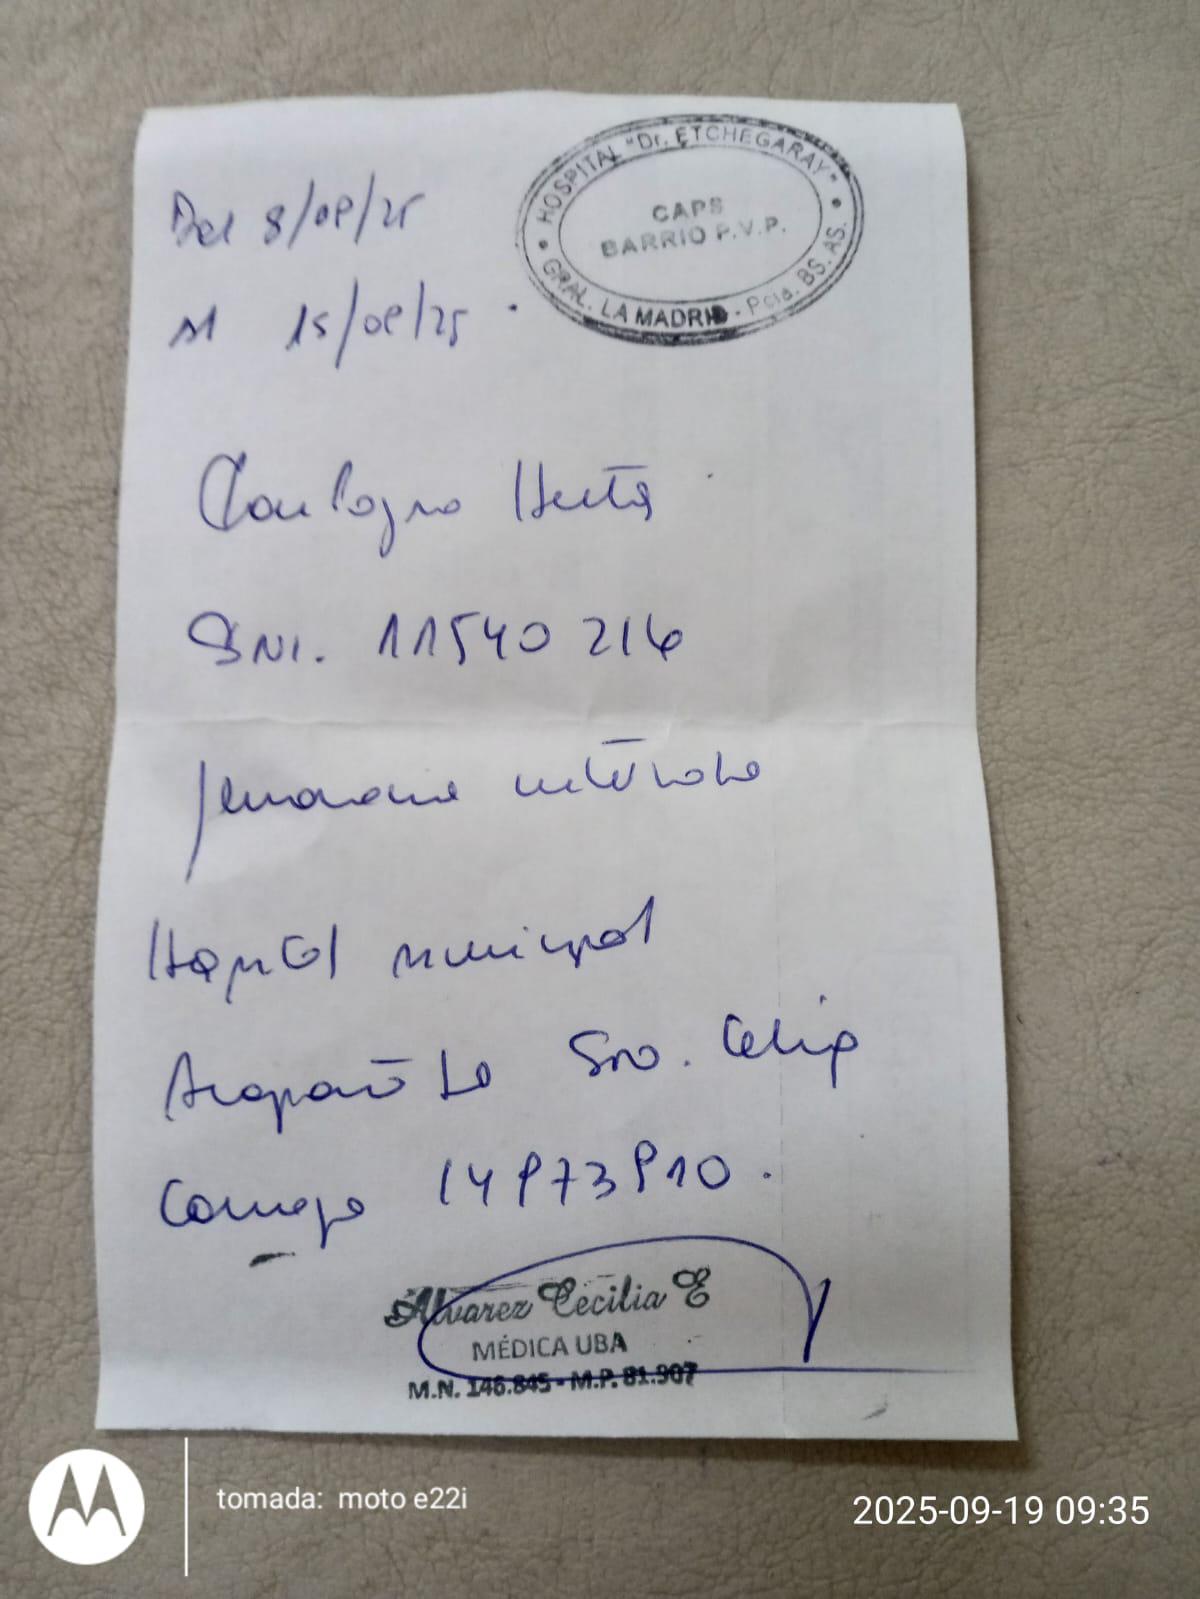 Del 8/09/25
HOSPITAL "Dr. ETCHEGARAY"
CAPS
BARRIO P.V.P.
GRAL. LA MADRID - Pcia. BS. AS.
Al 15/09/25
DNI. 11540216
Hospital municipal
Acompañó la Sra. Celia
Cornejo
Alvarez Cecilia E
MÉDICA UBA
M.N. 146.845 - M.P. 81.907
tomada: moto e22i
2025-09-19 09:35